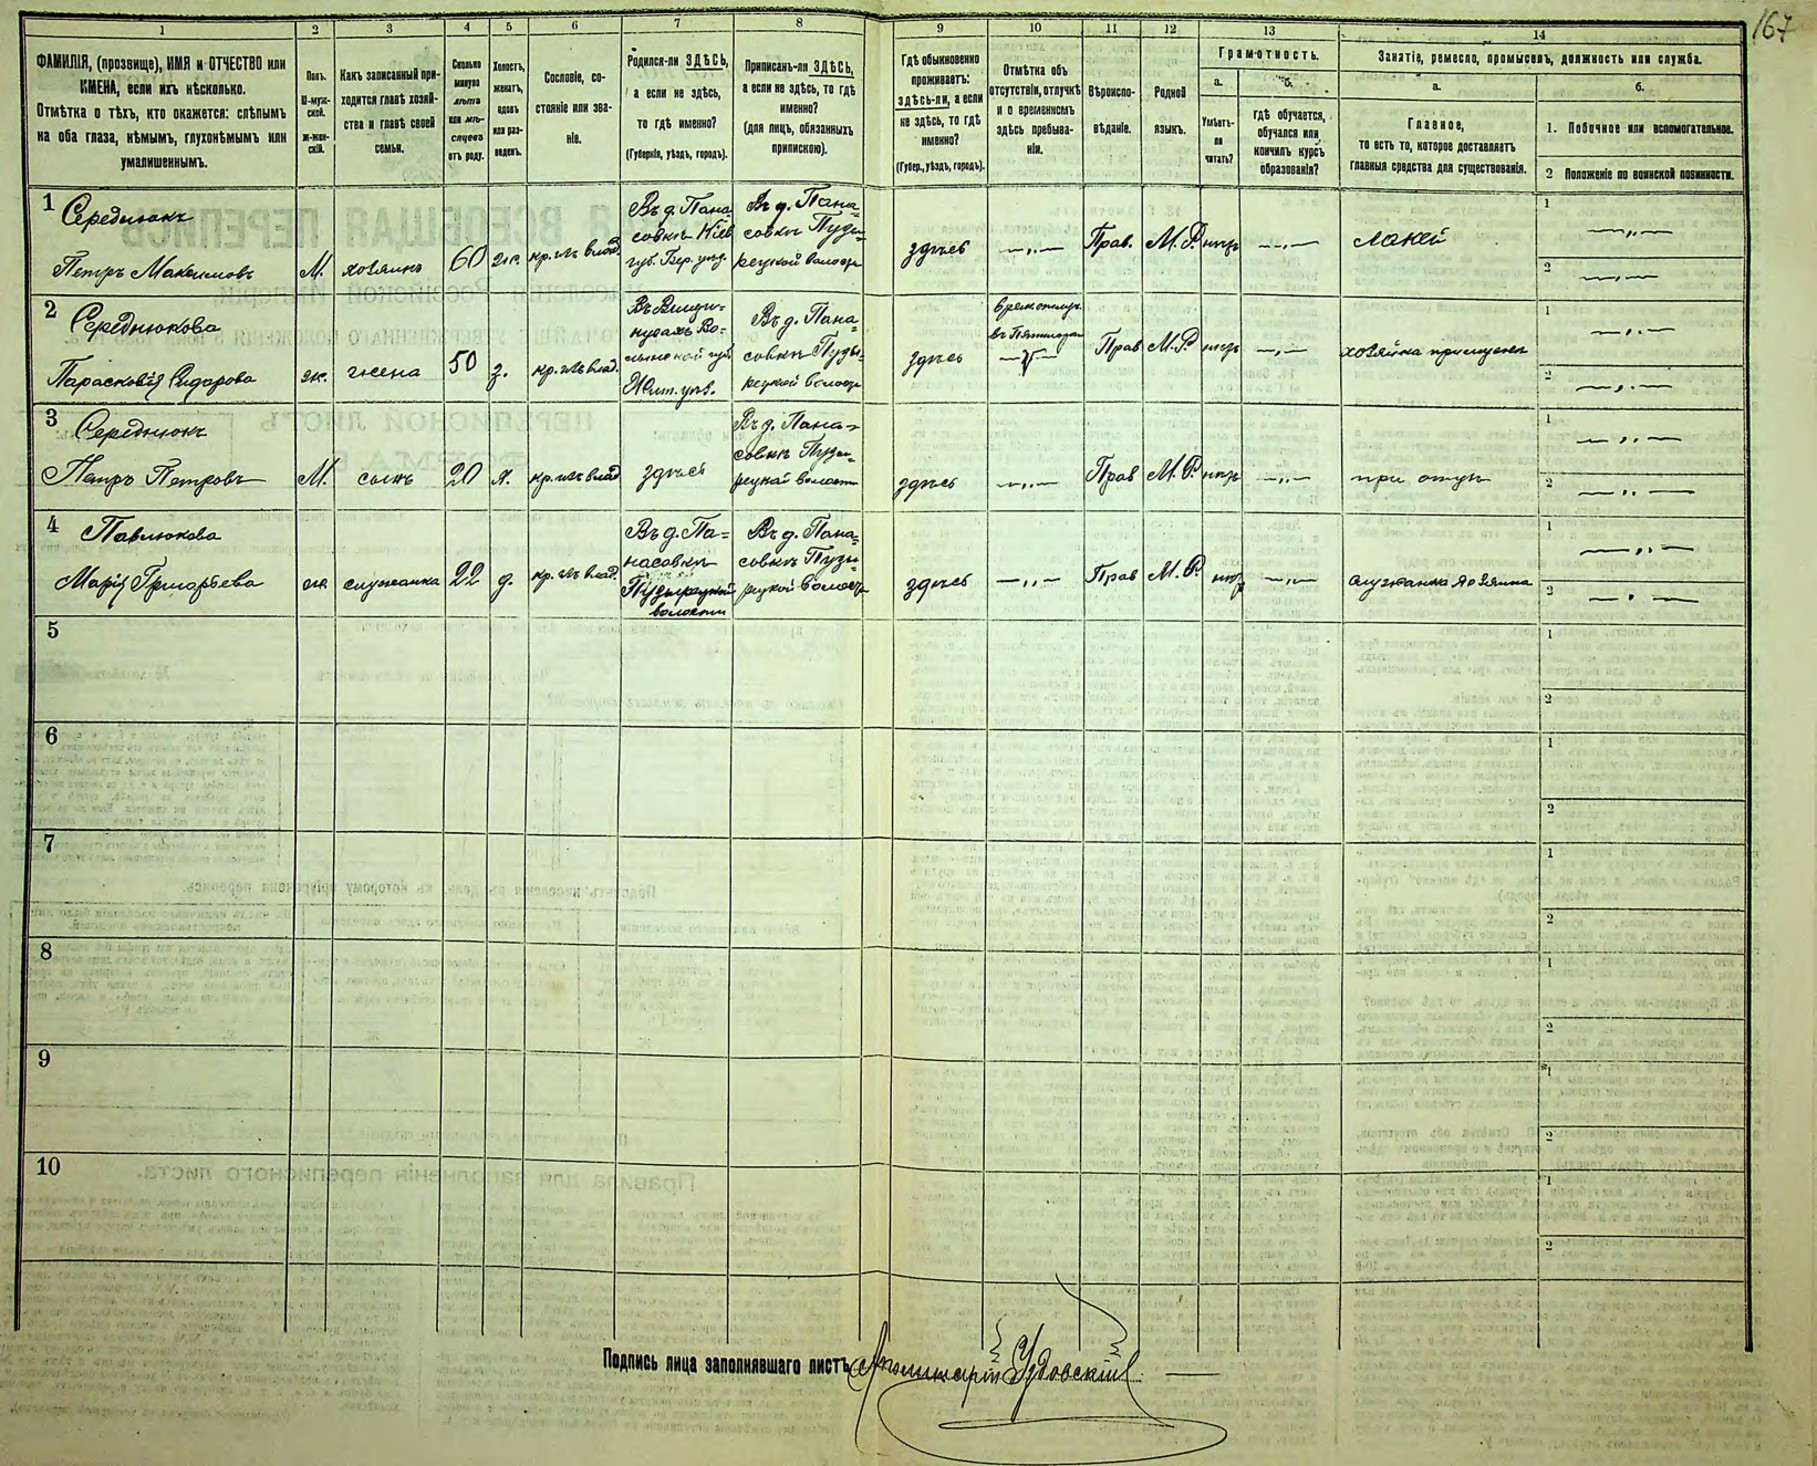 167
1 2 3 4 5 6 7 8 9 10 11 12 13 14
ФАМИЛІЯ, (прозвище), ИМЯ и ОТЧЕСТВО или
ИМЕНА, если ихъ нѣсколько.
Отмѣтка о тѣхъ, кто окажется: слѣпымъ
на оба глаза, нѣмымъ, глухонѣмымъ или
умалишеннымъ.
Полъ.
М-муж-
ской.
Ж-жен-
скій.
Какъ записанный при-
ходится главѣ хозяй-
ства и главѣ своей
семьи.
Сколько
минуло
лѣтъ
или мѣ-
сяцевъ
отъ роду.
Холостъ,
женатъ,
вдовъ
или раз-
веденъ.
Сословіе, со-
стояніе или зва-
ніе.
Родился-ли ЗДѢСЬ,
а если не здѣсь,
то гдѣ именно?
(Губернія, уѣздъ, городъ).
Приписанъ-ли ЗДѢСЬ,
а если не здѣсь, то гдѣ
именно?
(для лицъ, обязанныхъ
припискою).
Гдѣ обыкновенно
проживаетъ:
здѣсь-ли, а если
не здѣсь, то гдѣ
именно?
(Губер., уѣздъ, городъ).
Отмѣтка объ
отсутствіи, отлучкѣ
и о временномъ
здѣсь пребыва-
ніи.
Вѣроиспо-
вѣданіе.
Родной
языкъ.
Грамотность.
а.
Умѣетъ-
ли
читать?
б.
гдѣ обучается,
обучался или
кончилъ курсъ
образованія?
Занятіе, ремесло, промыселъ, должность или служба.
а.
Главное,
то есть то, которое доставляетъ
главныя средства для существованія.
б.
1. Побочное или вспомогательное.
2 Положеніе по воинской повинности.
1 Середнюкъ
Петръ Максимовъ
М. хозяинъ 60 ж. кр. изъ влад.
Въ д. Пана=
совкѣ Кіев
губ. Бер. уѣзд.
Въ д. Пана=
совкѣ Пузы=
рецкой волости
здѣсь —„— Прав. М.Р. нѣтъ —„— лакей
1 —„—
2 —„—
2 Середнюкова
Парасковія Сидорова
ж. жена 50 з. кр. изъ влад.
Во=
лынской губ.
Жит. уѣз.
Въ д. Пана=
совкѣ Пузы=
рецкой волости
здѣсь
Прав М.Р. нѣтъ —„— хозяйка при мужѣ
1 —„—
2 —„—
3 Середнюкъ
Петръ Петровъ
М. сынъ 20 х. кр. изъ влад здѣсь
Въ д. Пана=
совкѣ Пузы=
рецкой волости
здѣсь —„— Прав М.Р. нѣтъ —„— при отцѣ
1 —„—
2 —„—
4 Павлюкова
Марія Григорьева
ж. служанка 22 д. кр. изъ влад.
Въ д. Па=
насовкѣ
Пузырецкой
волости
Въ д. Пана=
совкѣ Пузы=
рецкой волости
здѣсь —„— Прав М.Р. нѣтъ —„— служанка хозяина
1 —„—
2 —„—
5
1
2
6
1
2
7
1
2
8
1
2
9
1
2
10
1
2
Подпись лица заполнявшаго листъ Аполинарій Удовскій